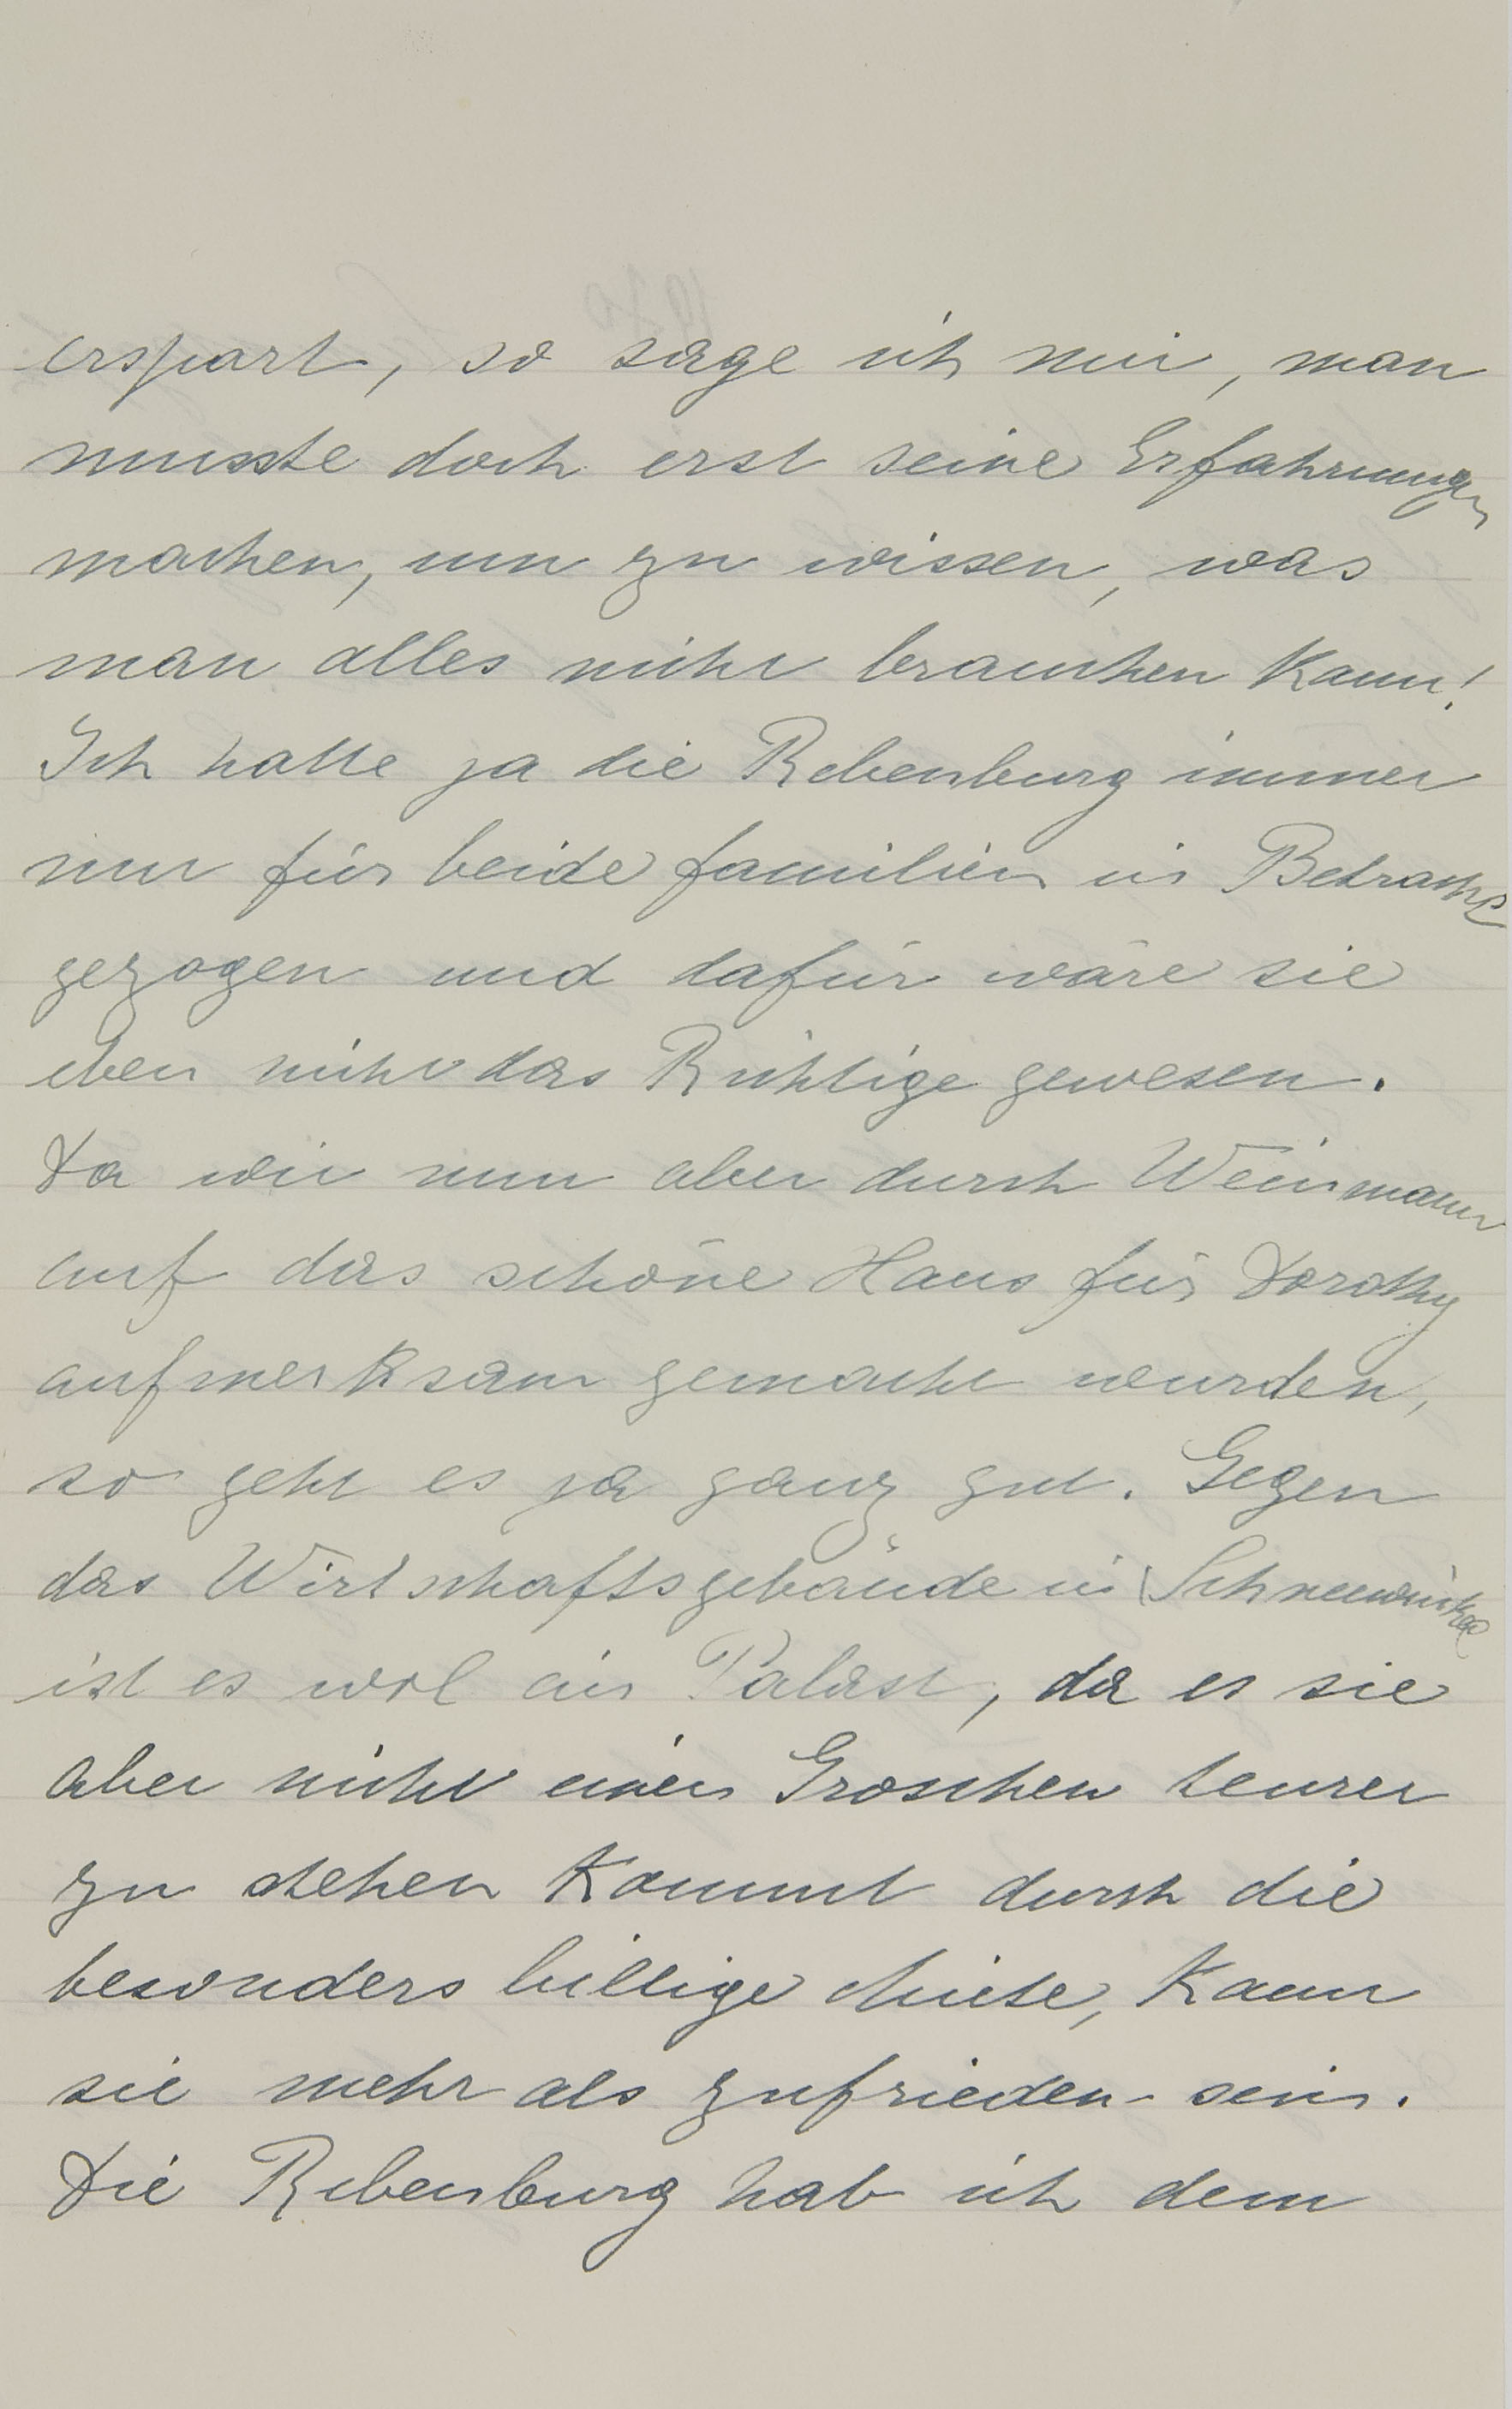 erspart, so sage ich mir, man
musste doch erst seine Erfahrungen
machen, um zu wissen, was
man alles nicht brauchen kann!
Ich hatte ja die Rebenburg immer
nur für beide Familien in Betracht
gezogen und dafür wäre sie
eben nicht das Richtige gewesen.
Da wir nun aber durch Weinmann
auf das schöne Haus für Dorothy
aufmerksam gemacht wurden,
so geht es ja ganz gut. Gegen
das Wirtschaftsgebäude in Schneewinkel
ist es wol ein Palast, da es sie
aber nicht einen Groschen teurer
zu stehen kommt durch die
besonders billige Miete, kann
sie mehr als zufrieden sein.
Die Rebenburg hab ich dem